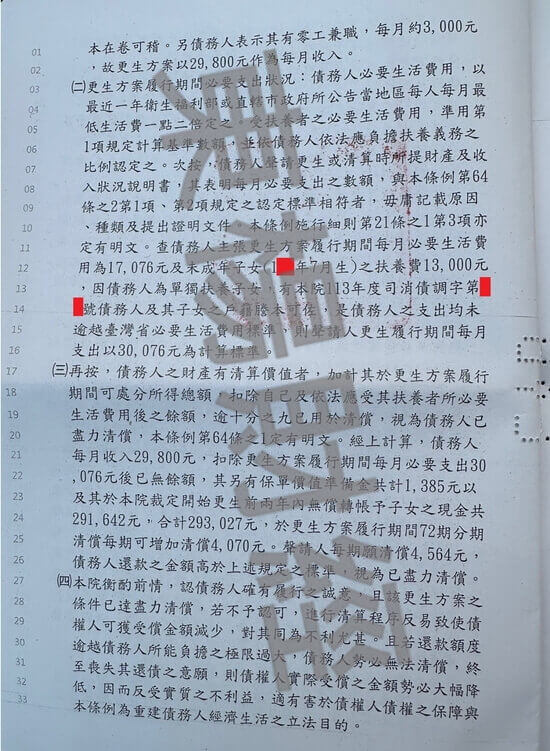 01 本在卷可稽。另債務人表示其有零工兼職,每月約3,000元
02 ,故更生方案以29,800元作為每月收入。
03 ㈡更生方案履行期間必要支出狀況:債務人必要生活費用,以
04 最近一年衛生福利部或直轄市政府所公告當地區每人每月最
05 低生活費一點二倍定之。受扶養者之必要生活費用,準用第
06 1項規定計算基準數額,並依債務人依法應負擔扶養義務之
07 比例認定之。次按,債務人聲請更生或清算時所提財產及收
08 入狀況說明書,其表明每月必要支出之數額,與本條例第64
09 條之2第1項、第2項規定之認定標準相符者,毋庸記載原因
10 、種類及提出證明文件。本條例施行細則第21條之1第3項亦
11 定有明文。查債務人主張更生方案履行期間每月必要生活費
12 用為17,076元及未成年子女(1 年7月生)之扶養費13,000元
13 ,因債務人為單獨扶養子女,有本院113年度司消債調字第
14 號債務人及其子女之戶籍謄本可佐,是債務人之支出均未
15 逾越臺灣省必要生活費用標準,則聲請人更生履行期間每月
16 支出以30,076元為計算標準。
17 ㈢再按,債務人之財產有清算價值者,加計其於更生方案履行
18 期間可處分所得總額,扣除自己及依法應受其扶養者所必要
19 生活費用後之餘額,逾十分之九已用於清償,視為債務人已
20 盡力清償,本條例第64條之1定有明文。經上計算,債務人
21 每月收入29,800元,扣除更生方案履行期間每月必要支出30
22 ,076元後已無餘額,其另有保單價值準備金共計1,385元以
23 及其於本院裁定開始更生前兩年內無償轉帳予子女之現金共
24 291,642元,合計293,027元,於更生方案履行期間72期分期
25 清償每期可增加清償4,070元。聲請人每期願清償4,564元,
26 債務人還款之金額高於上述規定之標準,視為已盡力清償。
27 ㈣本院衡酌前情,認債務人確有履行之誠意,且該更生方案之
28 條件已達盡力清償,若不予認可,進行清算程序反易致使債
29 權人可獲受償金額減少,對其同為不利尤甚。且若還款額度
30 逾越債務人所能負擔之極限過大,債務人勢必無法清償,終
31 至喪失其還債之意願,則債權人實際受償之金額勢必大幅降
32 低,因而反受實質之不利益,適有害於債權人債權之保障與
33 本條例為重建債務人經濟生活之立法目的。